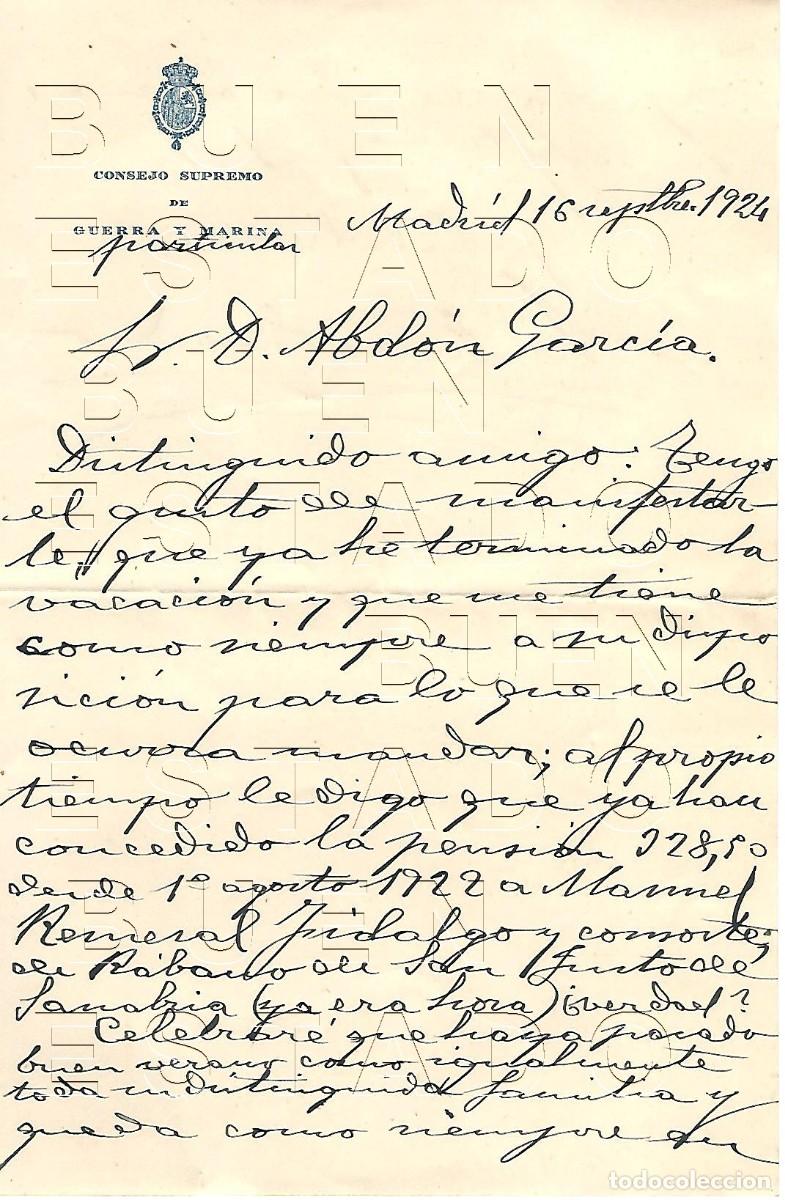 CONSEJO SUPREMO
DE
GUERRA Y MARINA
particular
Madrid 16 septbre. 1924
Sr. D. Abdón García.
Distinguido amigo: Tengo
el gusto de manifestar
le, que ya he terminado la
vacación y que me tiene
como siempre a su dispo
sición para lo que se le
ocurra mandar; al propio
tiempo le digo que ya han
concedido la pensión 328,50
desde 1º agosto 1922 a Manuel
Remesal Hidalgo y consorte,
de Rábano de San Justo de
Sanabria (ya era hora) ¿verdad?
Celebraré que haya pasado
buen verano como igualmente
toda su distinguida familia y
queda como siempre su
BUEN
ESTADO
BUEN
ESTADO
BUEN
ESTADO
BUEN
ESTADO
todocoleccion